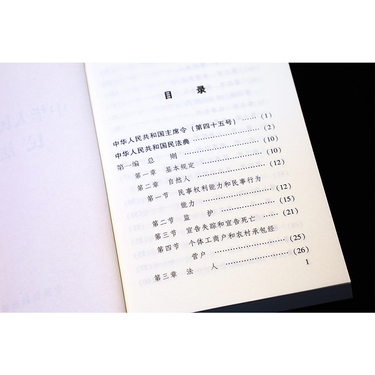 目 录
中华人民共和国主席令（第四十五号） ……（1）
中华人民共和国民法典 ……………………（2）
第一编 总 则 ……………………………（10）
第一章 基本规定 …………………………（10）
第二章 自然人 ……………………………（12）
第一节 民事权利能力和民事行为
能力 …………………………（12）
第二节 监 护 ……………………（15）
第三节 宣告失踪和宣告死亡 ………（21）
第四节 个体工商户和农村承包经
营户 …………………………（25）
第三章 法 人 ……………………………（26）
1